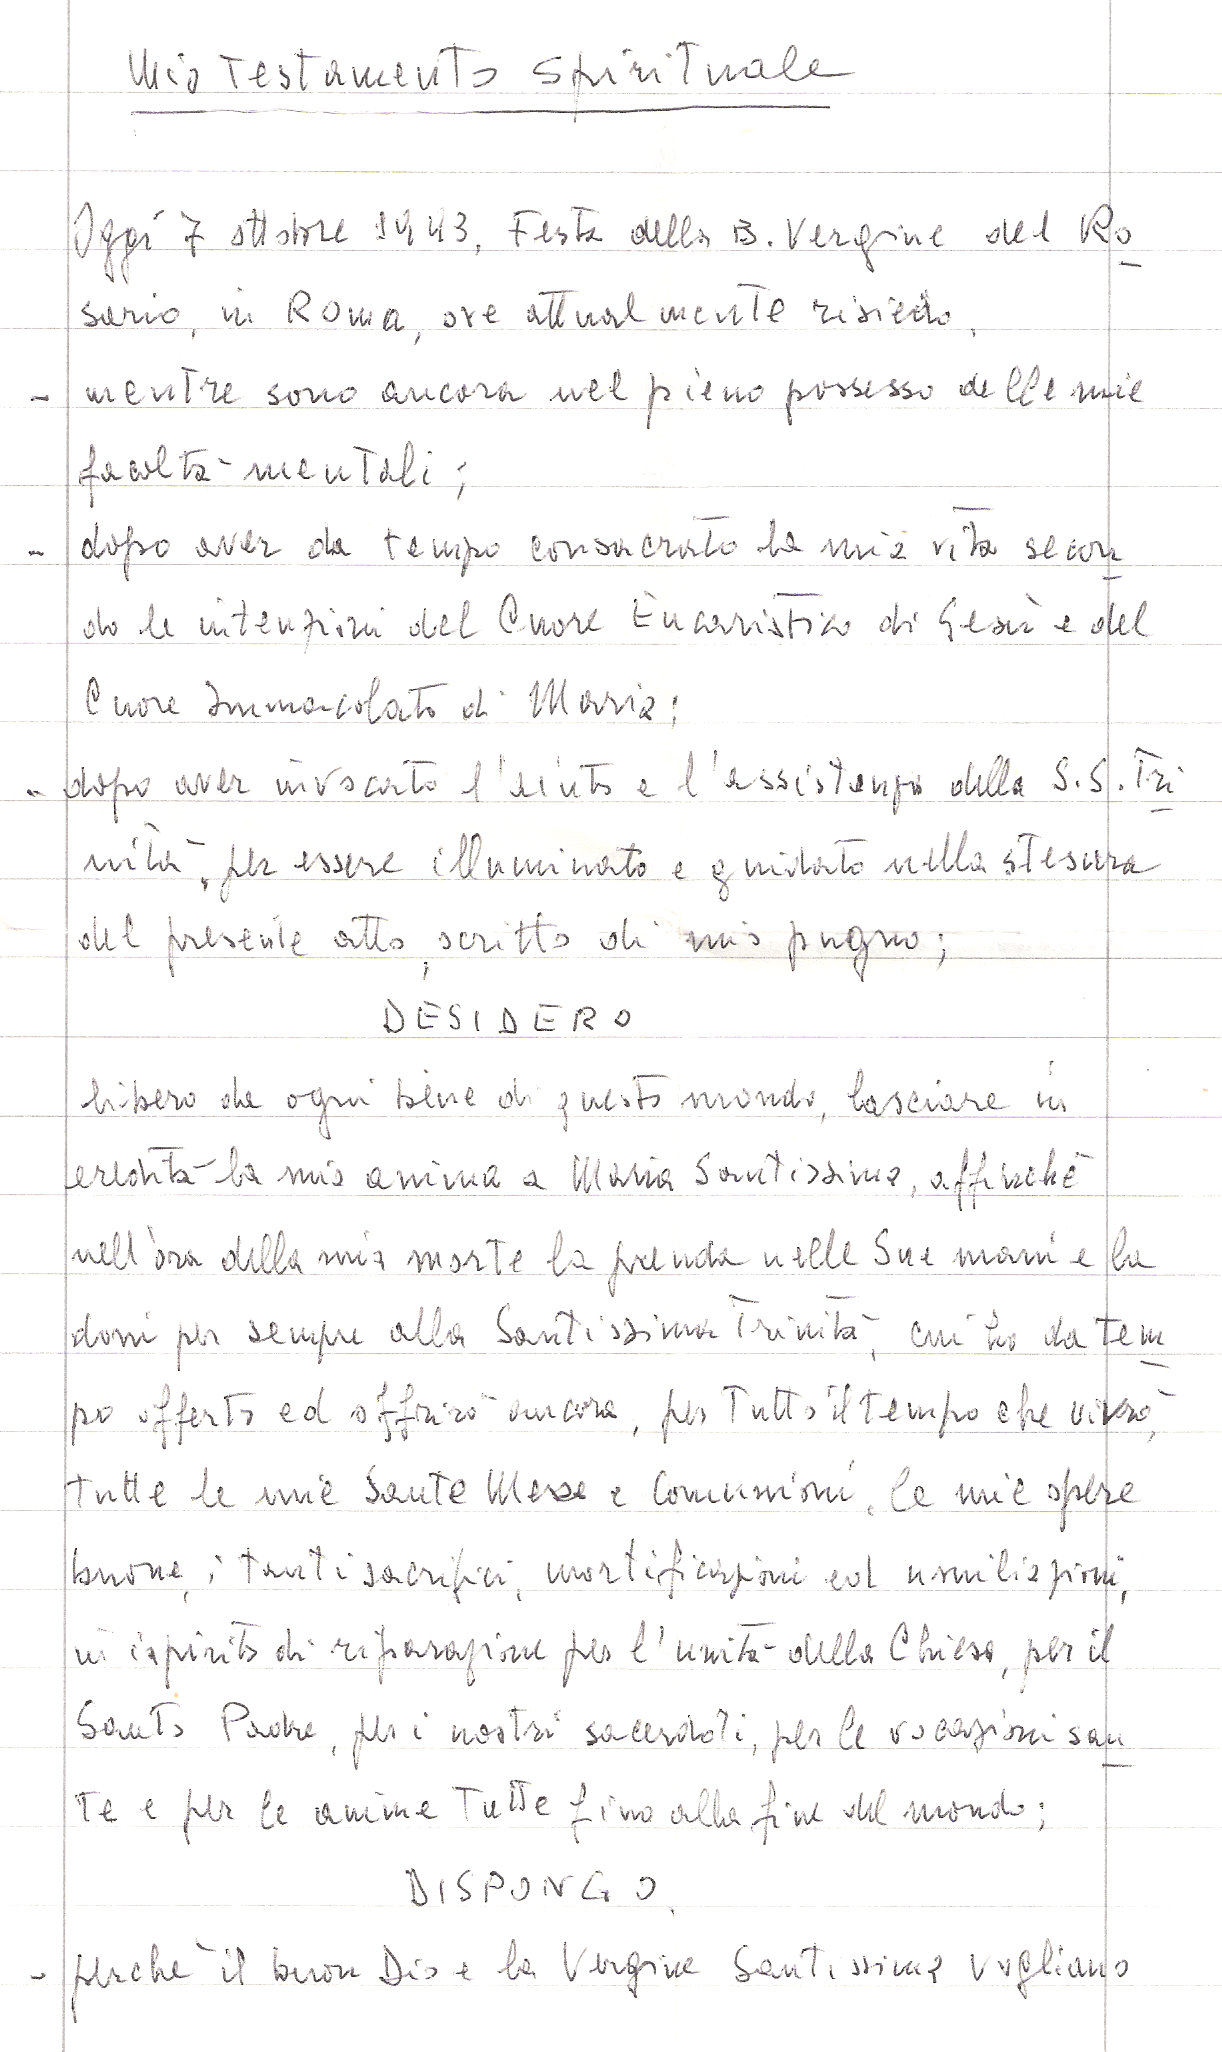 Mio Testamento Spirituale
Oggi 7 ottobre 1943, Festa della B. Vergine del Ro
sario, in Roma, ove attualmente risiedo,
- mentre sono ancora nel pieno possesso delle mie
facoltà mentali;
- dopo aver da tempo consacrato la mia vita secon
do le intenzioni del Cuore Eucaristico di Gesù e del
Cuore Immacolato di Maria;
- dopo aver invocato l'aiuto e l'assistenza della S.S. Tri
nità, per essere illuminato e guidato nella stesura
del presente atto, scritto di mio pugno;
DESIDERO
libero da ogni bene di questo mondo, lasciare in
eredità la mia anima a Maria Santissima, affinchè
nell'ora della mia morte la prenda nelle Sue mani e la
doni per sempre alla Santissima Trinità, cui ho da tem
po offerto ed offrirò ancora, per tutto il tempo che vivrò,
tutte le mie Sante Messe e Comunioni, le mie opere
buone, i tanti sacrifici, mortificazioni ed umiliazioni,
in ispirito di riparazione per l'unità della Chiesa, per il
Santo Padre, per i nostri sacerdoti, per le vocazioni san
te e per le anime tutte fino alla fine del mondo;
DISPONGO,
- perchè il buon Dio e la Vergine Santissima vogliano